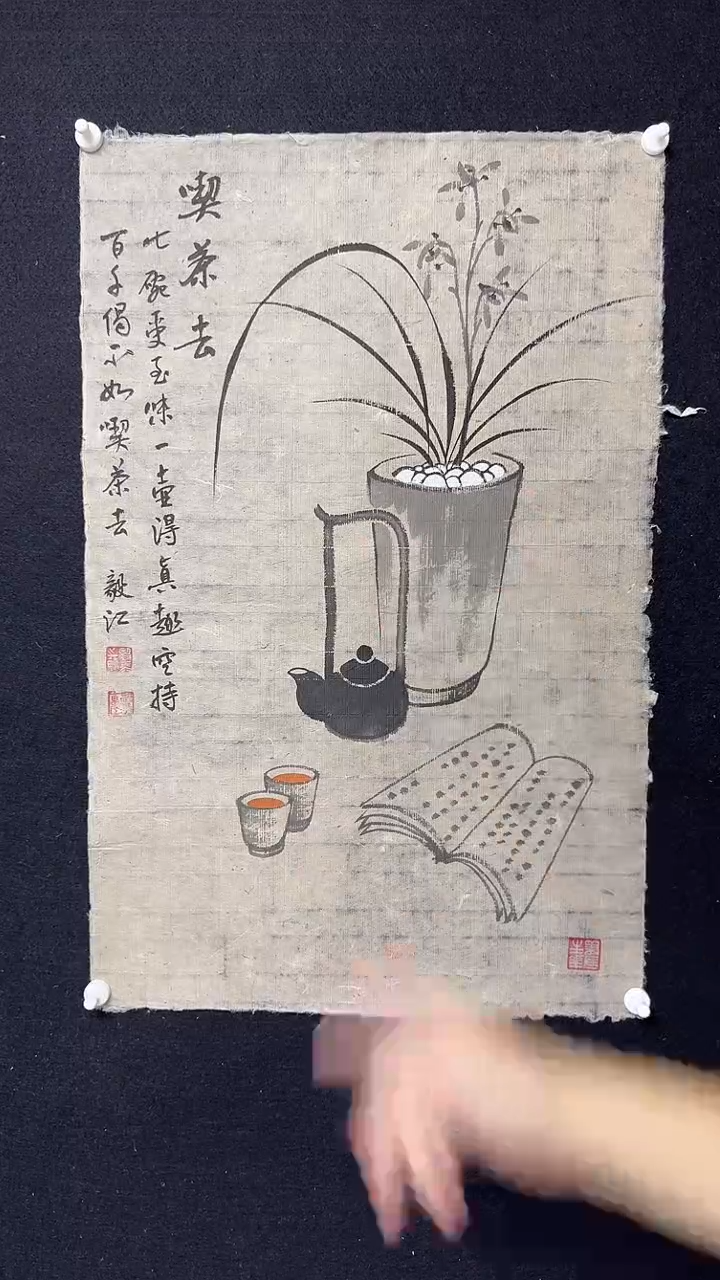 喫茶去
七碗受至味一壺得眞趣空持
百千偈不如喫茶去 毅江